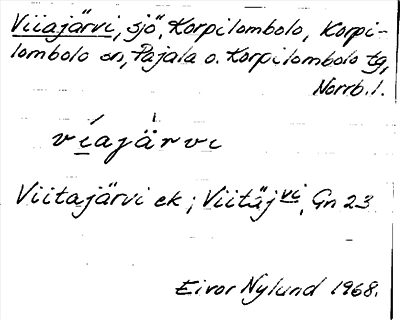 Viiajärvi, sjö, Korpilombolo, Korpi-
lombolo sn, Pajala o. Korpilombolo tg,
Norrb. l.
víajä̀rvi
Viitajärvi ek; Viitäjvi, Gn 23
Eivor Nylund 1968.